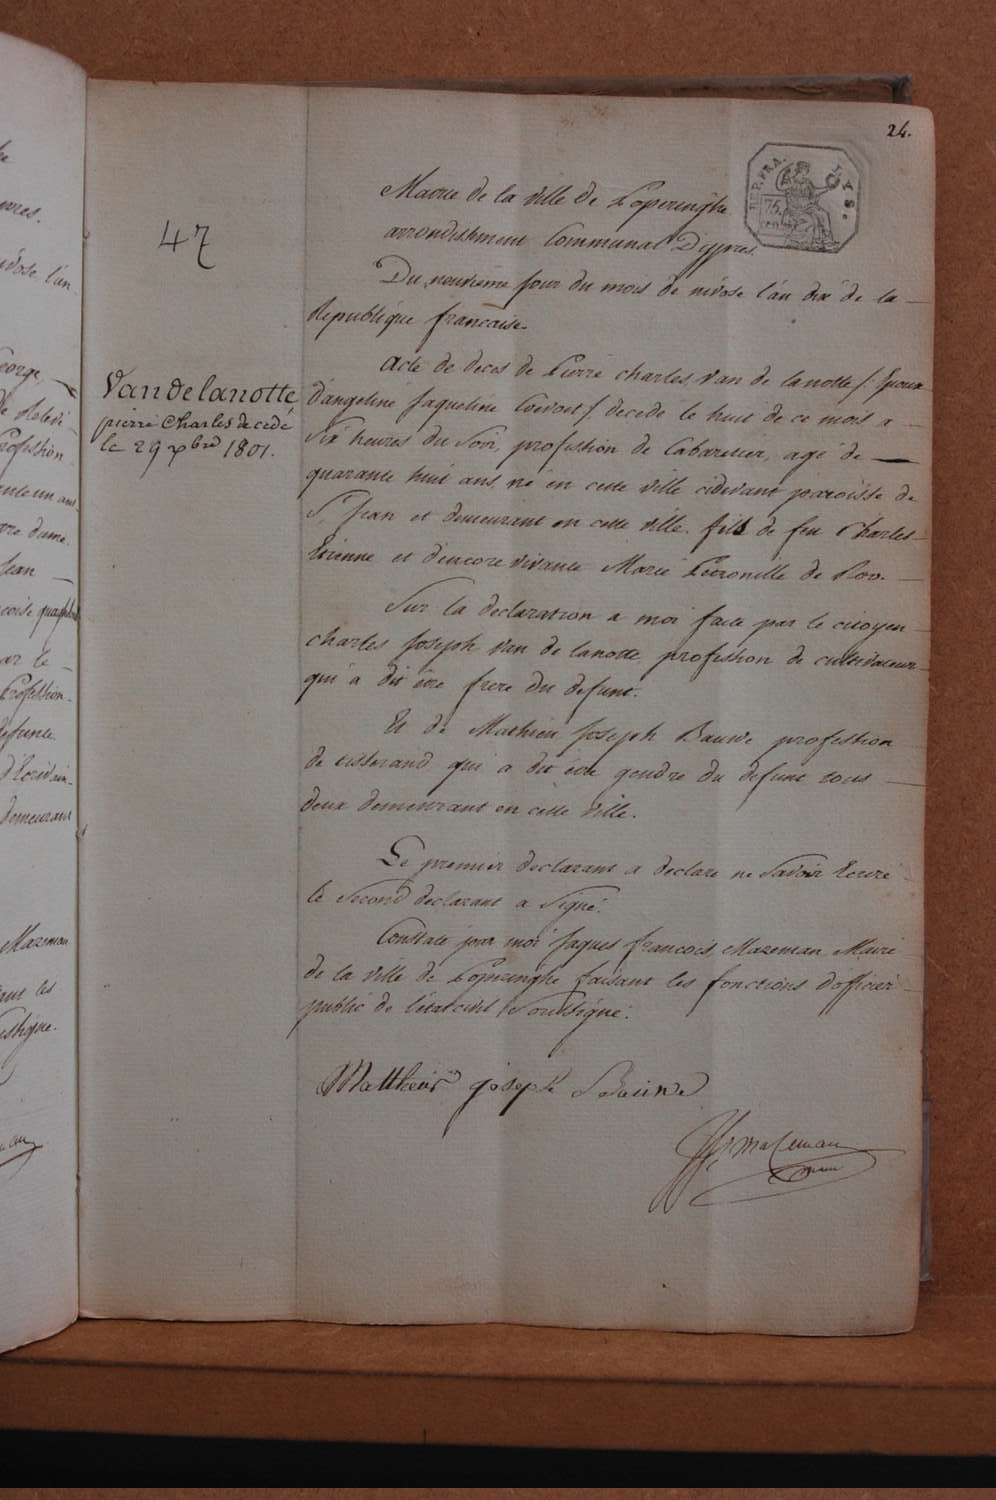 24.
REP. FRA.
75.
LYS.
47
Mairie de la ville de Poperinghe
arrondishment Communal D'ypres.
Du neuvieme jour du mois de nivose l'an dix de la
Republique francaise.
Vandelanotte
pierre Charles decedé
le 29 xbre 1801.
Acte de deces de Pierre charles Van de lanotte / Epoux
d'angeline Jaqueline Coevoet / decedé le huit de ce mois a
Six heures du Soir, profession de Cabaretier, agé de
quarante huit ans, né en cette ville cidevant paroisse de
S. Jean et demeurant en cette ville. fils de feu Charles
Etienne et d'encore vivante Marie Petronille de Roo.
Sur la declaration a moi faite par le citoyen
charles Joseph Van de lanotte profession de cultivateur
qui a dit être frere du defunt.
Et de Mathieu Joseph Bauwe profession
de tisserand qui a dit être gendre du defunt tous
deux demeurant en cette ville.
Le premier declarant a declaré ne Savoir Ecrire
le Second declarant a Signé.
Constaté par moi Jaques francois Mazeman Maire
de la ville de Poperinghe faisant les fonctions d'officier
public de l'état civil Soussigné.
Mattheus joseph Bauwe
Mazeman